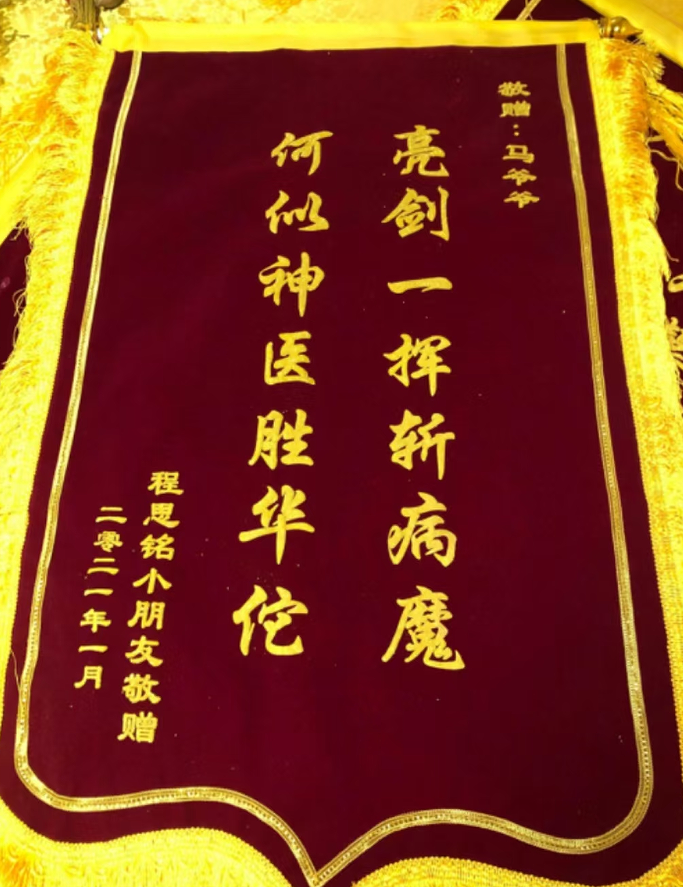 敬赠：马爷爷
亮剑一挥斩病魔
何似神医胜华佗
程思铭小朋友敬赠
二零二一年一月